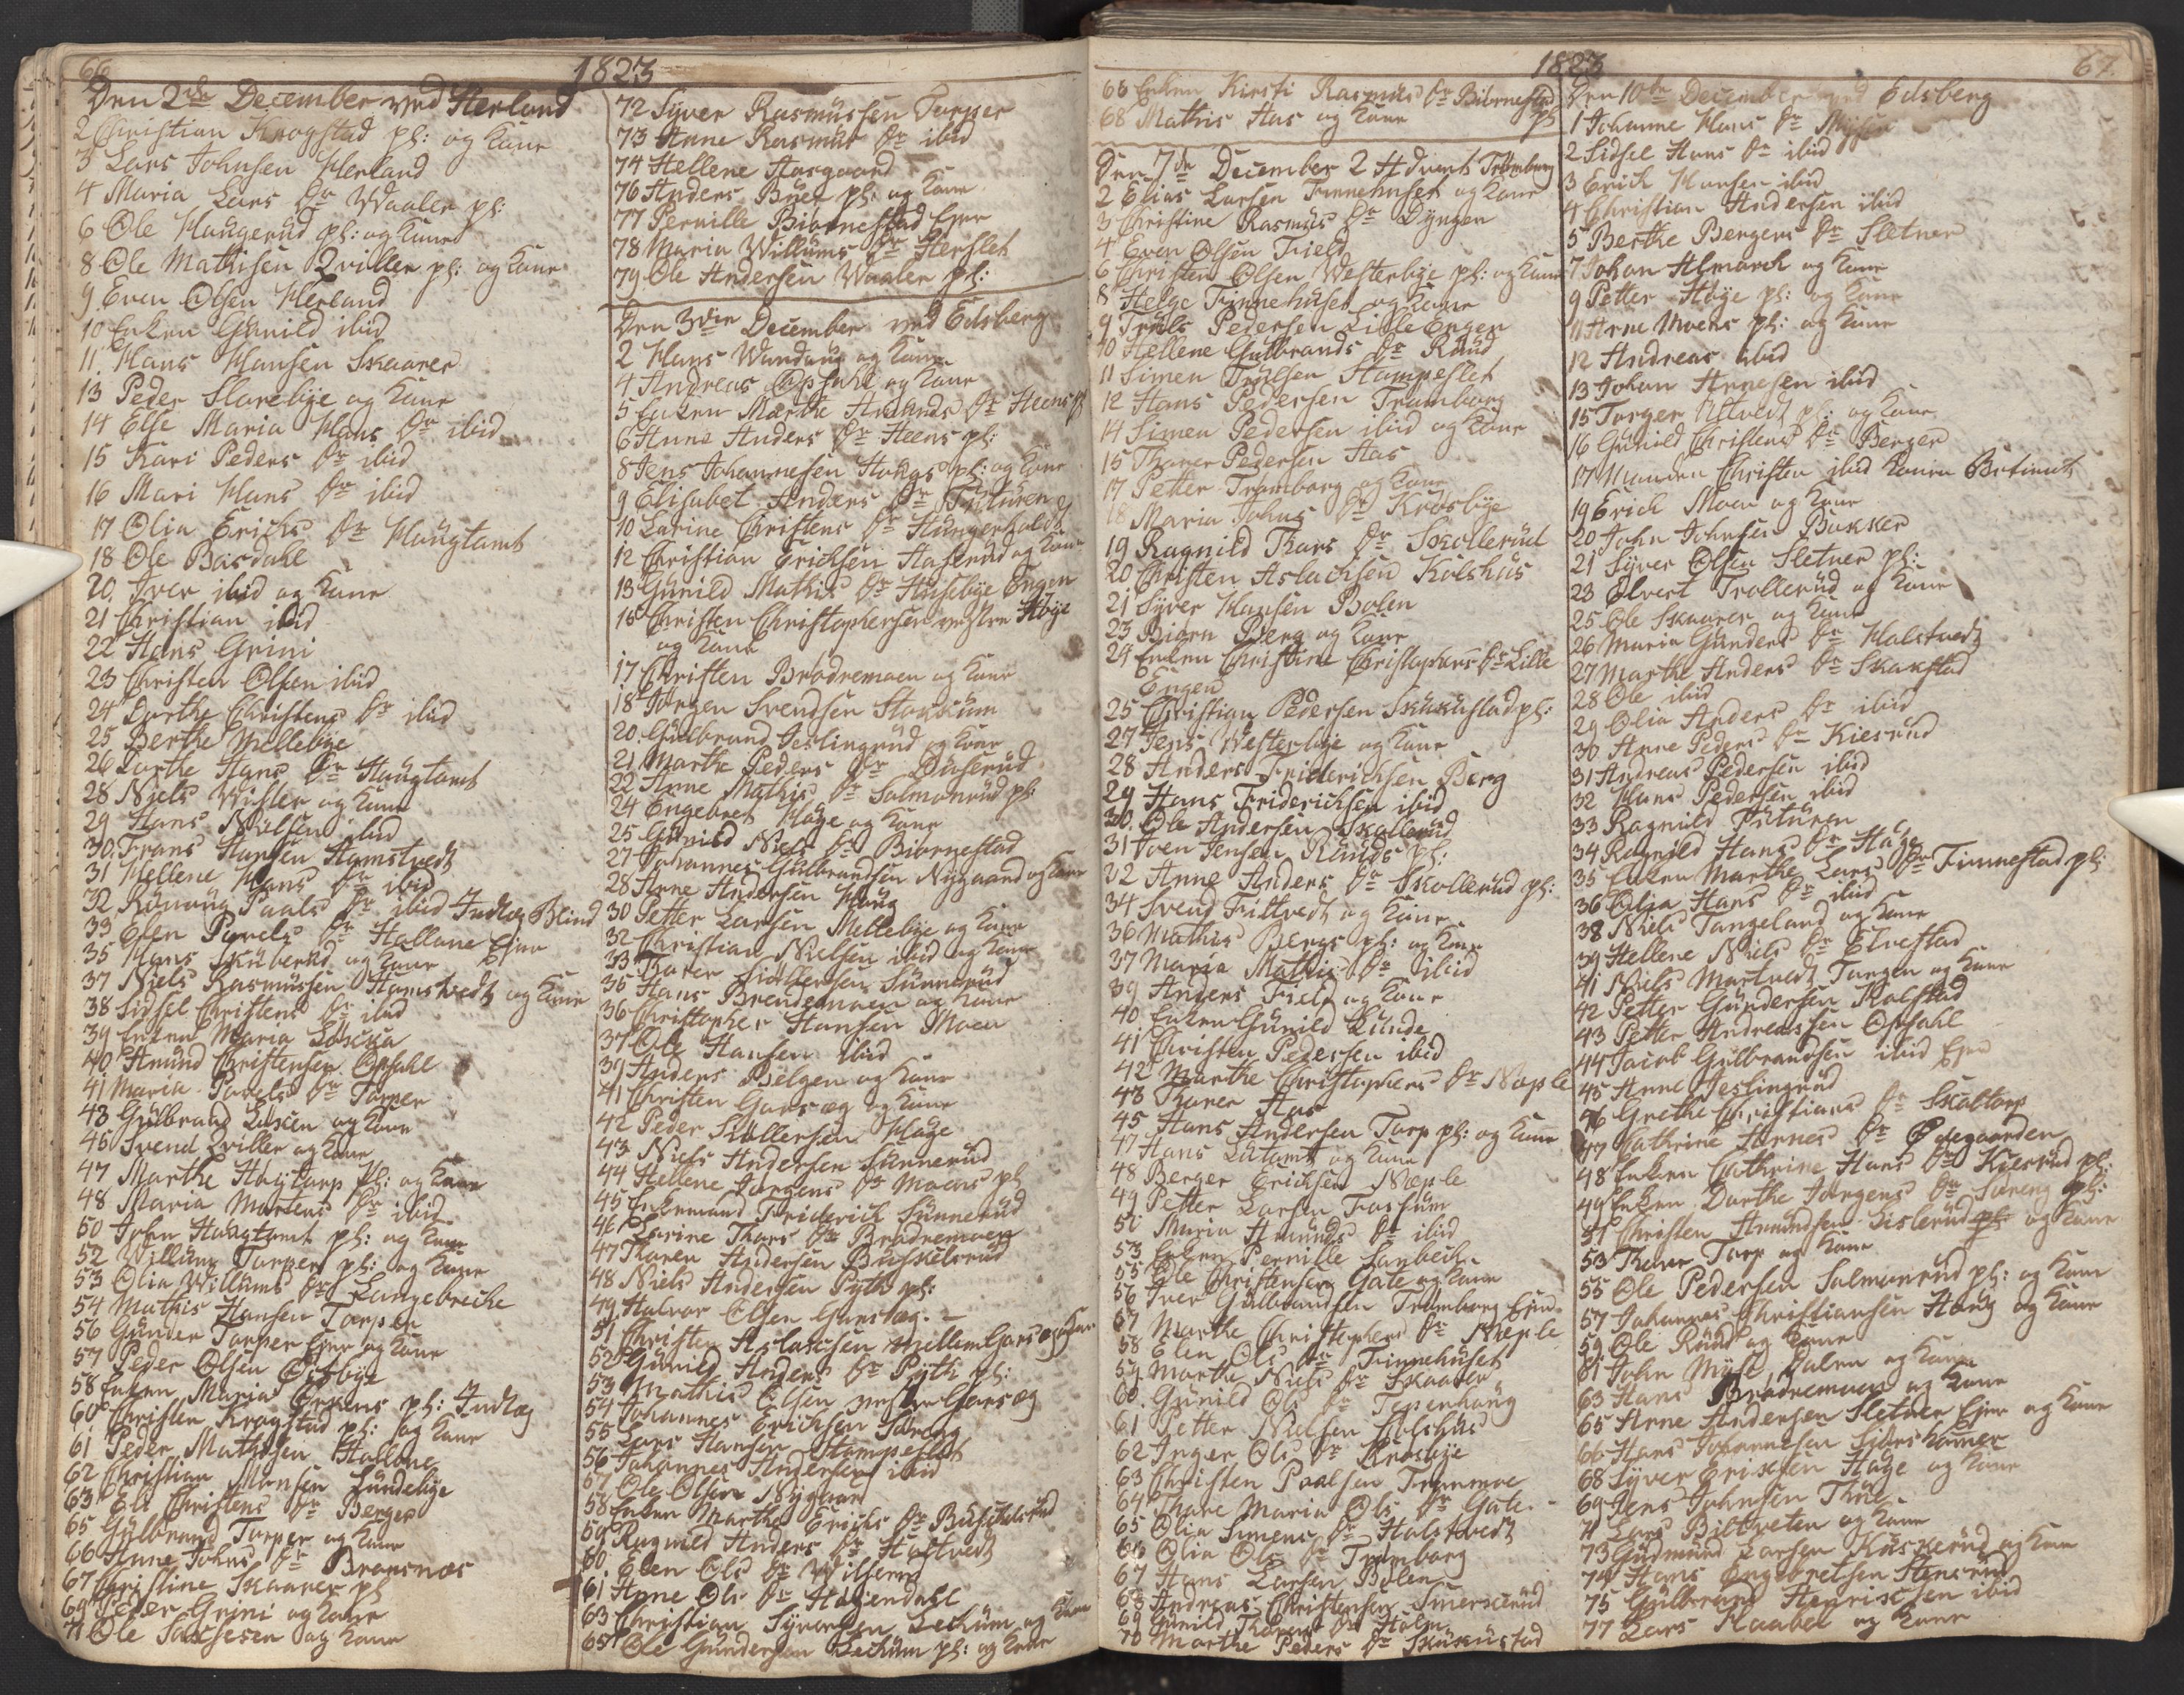 66
1823
Den 2den December ved Herland
2 Christian Krogstad pl: og Kone
3 Lars Johnsen Herland
4 Maria Lars Dr Waaler pl:
6 Ole Haugerud pl: og Kone
8 Ole Mathisen Qviller pl: og Kone
9 Even Olsen Herland
10 Enken Gunild ibid
11 Hans Hansen Skaarer
13 Peder Slorebye og Kone
14 Else Maria Hans Dr ibid
15 Kari Peders Dr ibid
16 Mari Hans Dr ibid
17 Olia Erichs Dr Haugtomt
18 Ole Basdahl
20 Iver ibid og Kone
21 Christian ibid
22 Hans Grini
23 Christen Olsen ibid
24 Dorthe Christens Dr ibid
25 Berthe Mellebye
26 Dorthe Hans Dr Haugtomt
28 Niels Wister og Kone
29 Hans Nielsen ibid
30 Frans Hansen Hamstvedt
31 Hellene Hans Dr ibid
32 Rønnaug Paals Dr ibid Indlæg Blind
33 Elen Povels Dr Hallone Ejer
35 Hans Skuberud og Kone
37 Niels Rasmussen Hamstvedt og Kone
38 Sidsel Christens Dr ibid
39 Enken Maria Løcka
40 Amund Christensen Opsahl
41 Maria Povels Dr Torper
43 Gulbrand Løken og Kone
46 Svend Qviller og Kone
47 Marthe Høytorp pl: og Kone
48 Maria Mortens Dr ibid
50 John Haugtomt pl: og Kone
52 Willum Torper pl: og Kone
53 Olia Willums Dr Langebreche
54 Mathis Hansen Torper
56 Gunder Torper Ejer og Kone
57 Peder Olsen Ostbye
58 Enken Maria pl: Indlæg
60 Christen Krogstad pl: og Kone
61 Peder Mathisen Hallone
62 Christian Monsen Lundebye
63 Eli Christens Dr Berger
65 Gulbrand Torper og Kone
66 Anne Johns Dr Bransnæs
67 Christine Skaarer pl
69 Peder Grini og Kone
71 Ole og Kone
72 Syver Rasmussen Torper
73 Anne Rasmus Dr ibid
74 Hellene Hasgaard
76 Anders Buer pl: og Kone
77 Pernille Biørnestad Ejer
78 Maria Willums Dr Herslet
79 Ole Andersen Waaler pl:
Den 3die December ved Edsberg
2 Hans og Kone
4 Andreas Opsahl og Kone
5 Enken Marthe Amunds Dr Heens pl
6 Anne Anders Dr Heens pl:
8 Jens Johannesen Hokaas pl: og Kone
9 Elisabet Anders Dr Futuren
10 Larine Christens Dr Hungerholdt
12 Christian Erichsen Haserud og Kone
13 Gunild Mathis Dr Husebye Engen
16 Christen Christophersen vestre Høye
og Kone
17 Christen Brødremoen og Kone
18 Jørgen Svendsen Stokkum
20 Gulbrand Jeslingrud og Kone
21 Marthe Peders Dr Buserud
22 Anne Mathis Dr Salmonrud pl:
24 Engebret Hage og Kone
25 Gunild Niels Dr Biørnestad
27 Johannes Gulbrandsen Nygaard og Kone
28 Arne Andersen Haug
30 Petter Larsen Mellebye og Kone
32 Christian Nielsen ibid og Kone
33 Thorer Siøllersen Sunnerud
35 Hans Brendemoen og Kone
36 Christopher Hansen Moen
37 Ole Hansen ibid
39 Anders Bølgen og Kone
41 Christen Garsæg og Kone
42 Peder Siøllersen Hage
43 Niels Andersen Sunnerud
44 Hellene Jørgens Dr Moens pl
45 Enkemand Friderich Sunnerud
46 Larine Thors Dr Brødremoen
47 Thoren Andersen Buskelsrud
48 Niels Andersen Pyth pl:
49 Halvor Olsen Garsæg
51 Christen Aslacksen Mellem Garsæg og Kone
52 Gunild Anders Dr Pyth pl:
53 Mathis Olsen vestre Garsæg
54 Johannes Erichsen Søreng
55 Lars Hansen Stampeslet
56 Johannes Andersen ibid
57 Ole Olsen Nygaard
58 Enken Marthe Erichs Dr Buskelsrud
59 Ragnild Anders Dr Haltvedt
60 Elen Ols Dr
61 Anne Ols Dr Hagendahl
63 Christian Syversen Lechum og Kone
65 Ole Gundersen Lechum pl: og Kone
1823
67
66 Enken Kirsti Rasmus Dr Biørnestad
68 Mathis Aas og Kone pl
Den 7de December 2 Advent Trømborg
2 Elias Larsen Finnehuset og Kone
3 Christine Rasmus Dr Dyngen
4 Even Olsen Field
6 Christen Olsen Westerbye pl: og Kone
8 Helge Finnehuset og Kone
9 Truls Pedersen Lille Engen
10 Hellene Gulbrands Dr Ruud
11 Simen Trulsen Stampeslet
12 Hans Pedersen Tramborg
14 Simen Pedersen ibid og Kone
15 Thorer Pedersen Aas
17 Petter Tramborg og Kone
18 Maria Johns Dr Krosbye
19 Ragnild Thors Dr Skollerud
20 Christen Aslacksen Kolshus
21 Syver Hansen Bolen
23 Biørn Berg og Kone
24 Enken Christine Christophers Dr Lille
Engen
25 Christian Pedersen Skukustad pl:
27 Jens Westerbye og Kone
28 Anders Friderichsen Berg
29 Hans Friderichsen ibid
30 Ole Andersen Skollerud
31 Joen Jensen Ruuds pl:
32 Anne Anders Dr Skollerud pl:
34 Svend Fittvedt og Kone
36 Mathis Bergs pl: og Kone
37 Maria Mathis Dr ibid
39 Anders Field og Kone
40 Enken Gunild Lunde
41 Christen Pedersen ibid
42 Marthe Christophers Dr Nøple
43 Thorer Aas
45 Hans Andersen Torp pl: og Kone
47 Hans Lutomt og Kone
48 Berger Erichsen Næple
49 Petter Larsen Fossum
51 Maria Amunds Dr ibid
53 Enken Pernille
55 Ole Christensen Gate og Kone
56 Iver Gulbrandsen Tramborg Ejer
57 Marthe Christophers Dr Næple
58 Elen Ols Dr Finnehuset
59 Marthe Niels Dr Skaarer
60 Gunild Ols Dr Tepenhaug
61 Petter Nielsen Kolshus
62 Inger Ols Dr Krosbye
63 Christen Poulsen
64 Thore Maria Ols Dr Gate
65 Olia Simens Dr Halstvedt
66 Olia Ols Dr Tramborg
67 Hans Larsen Bolen
68 Andreas Christensen
69 Gunild Dr Holm
70 Marthe Peders Dr Skukustad
Den 10de December ved Edsberg
1 Johanne Hans Dr Mysen
2 Sidsel Hans Dr ibid
3 Erich Hansen ibid
4 Christian Andersen ibid
5 Berthe Bergers Dr Sletner
7 Johan Almarch og Kone
9 Petter Høye pl: og Kone
11 Arne Moens pl: og Kone
12 Andreas ibid
13 Johan Arnesen ibid
15 Torger Ultvedt pl: og Kone
16 Gunild Christens Dr Berger
17 Manden Christen ibid Konen Betient
19 Erich Moen og Kone
20 John Johnsen Bakker
21 Syver Olsen Sletner pl:
23 Elvert Trollerud og Kone
25 Ole Skaarer og Kone
26 Maria Gunders Dr Halstvedt
27 Marthe Anders Dr Skakstad
28 Ole ibid
29 Olia Anders Dr ibid
30 Anne Peders Dr Kiesrud
31 Andreas Pedersen ibid
32 Hans Pedersen ibid
33 Ragnild Futuren
34 Ragnild Hans Dr Hage
35 Enken Marthe Lars Dr Finnestad pl:
36 Olia Hans Dr ibid
38 Niels Tangeland og Kone
39 Hellene Niels Dr Elvestad
41 Niels Martvedt Tangen og Kone
42 Petter Gundersen Kolstad
43 Petter Andreassen Opsahl
44 Jacob Gulbrandsen ibid Ejer
45 Anne Jeslingrud
46 Grethe Christians Dr Skaltorp
47 Cathrine Arnes Dr Ødegaarden
48 Enken Cathrine Hans Dr Kiesrud pl:
49 Enken Dorthe Jørgens Dr Søreng pl:
51 Christen Amundsen Gislerud pl: og Kone
53 Thorer Torp og Kone
55 Ole Pedersen Salmonrud pl: og Kone
57 Johannes Christiansen Haug og Kone
59 Ole Ruud og Kone
61 John Myhr, Dalen og Kone
63 Hans Brødremoen og Kone
65 Arne Andersen Sletner Ejer og Kone
66 Hans Johannesen
68 Syver Erichsen Hage og Kone
69 Jens Johnsen
71 Lars og Kone
73 Gudmund Larsen Kuskerud og Kone
74 Hans Engebretsen Stensrud
75 Gulbrand Henrichsen ibid
77 Lars Kaabel og Kone